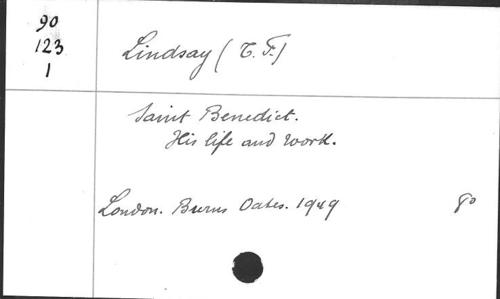 90
123
1
Lindsay (T. F.)
Saint Benedict.
His life and work.
London. Burns Oates. 1949 8o